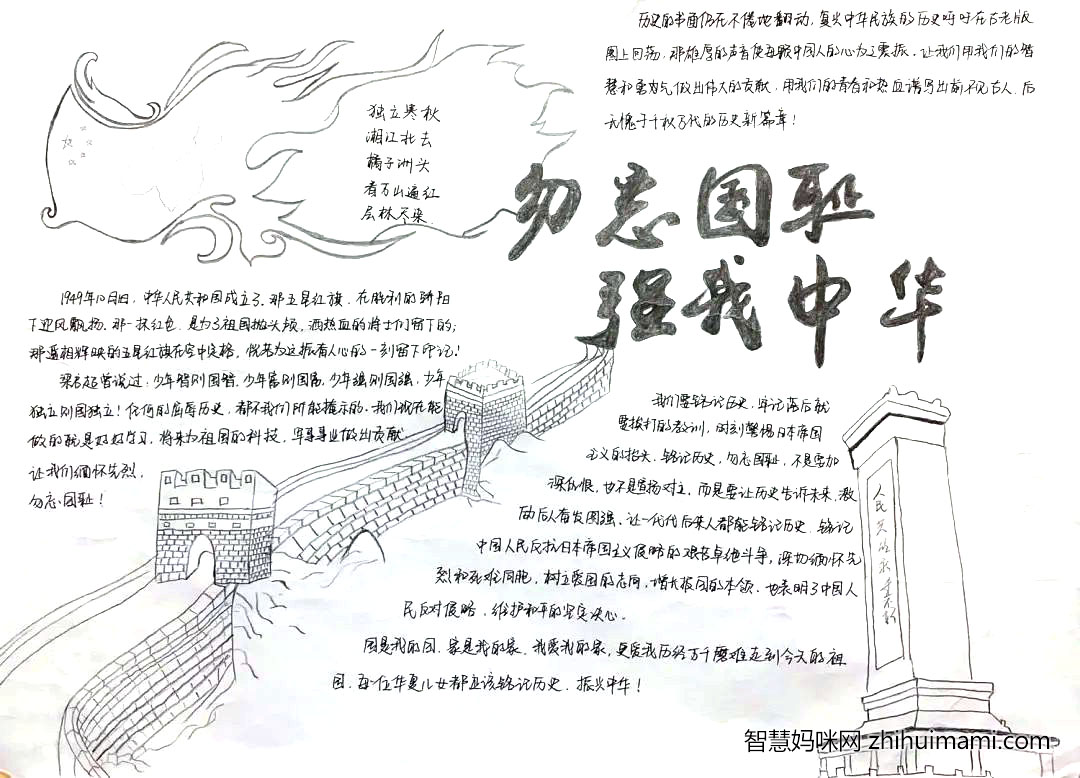 独立寒秋
湘江北去
橘子洲头
看万山遍红
层林尽染
历史的书画仍在不倦地翻动，复兴中华民族的历史呼吁在古老版
图上回荡，那雄厚的声音使每个中国人的心为之震振，让我们用我们的智
慧和勇气做出伟大的贡献，用我们的青春和热血谱写出前不见古人，后
无愧于千秋万代的历史新篇章！
勿忘国耻
强我中华
1949年10月1日，中华人民共和国成立了。那五星红旗，在胜利的骄阳
下迎风飘扬。那一抹红色，是为了祖国抛头颅，洒热血的将士们留下的；
那遥相辉映的五星红旗在空中定格，就是为这振奋人心的一刻留下印记！
梁启超曾说过：少年智则国智，少年富则国富，少年强则国强，少年
独立则国独立！任何的屈辱历史，都不我们所能揭示的。我们现在能
做的就是好好学习，将来为祖国的科技，军事事业做出贡献
让我们缅怀先烈，
勿忘国耻！
我们要铭记历史，牢记落后就
要挨打的教训，时刻警惕日本帝国
主义的抬头。铭记历史，勿忘国耻，不是要加
深仇恨，也不是宣扬对立，而是要让历史告诉未来，激
励后人奋发图强，让一代代后来人都能铭记历史，铭记
中国人民反抗日本帝国主义侵略的艰苦卓绝斗争，深切缅怀先
烈和死难同胞，树立爱国的志向，增长报国的本领，也表明了中国人
民反对侵略，维护和平的坚实决心。
国是我的国，家是我的家，我爱我的家，更爱我历经万千磨难走到今天的祖
国，每一位华夏儿女都应该铭记历史，振兴中华！
人民英雄永垂不朽
智慧妈咪网 zhihuimami.com